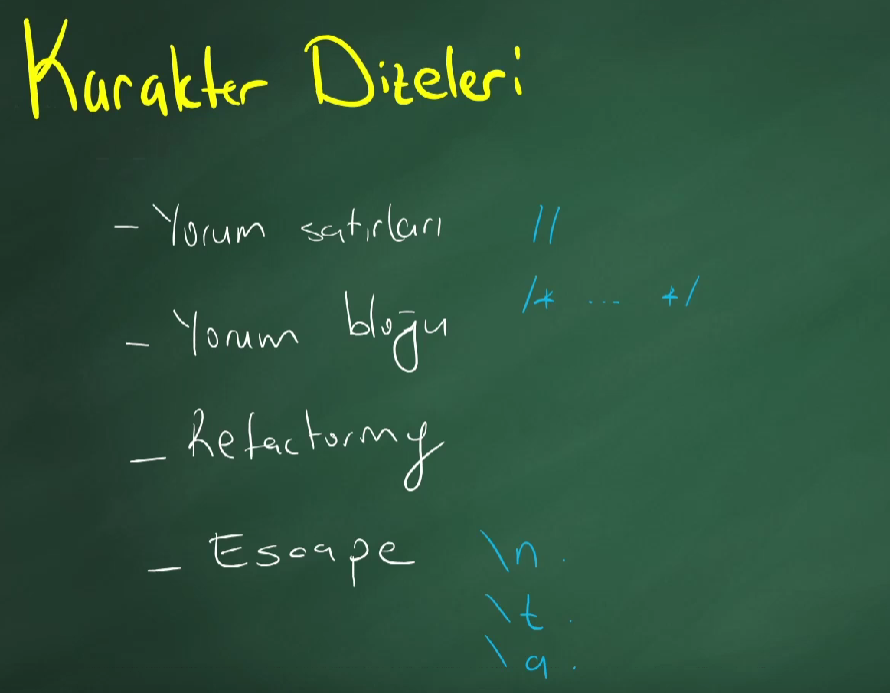 Karakter Dizeleri
- Yorum satırları //
- Yorum bloğu /* ... */
- Refactormg
- Escape \n .
\t .
\a .